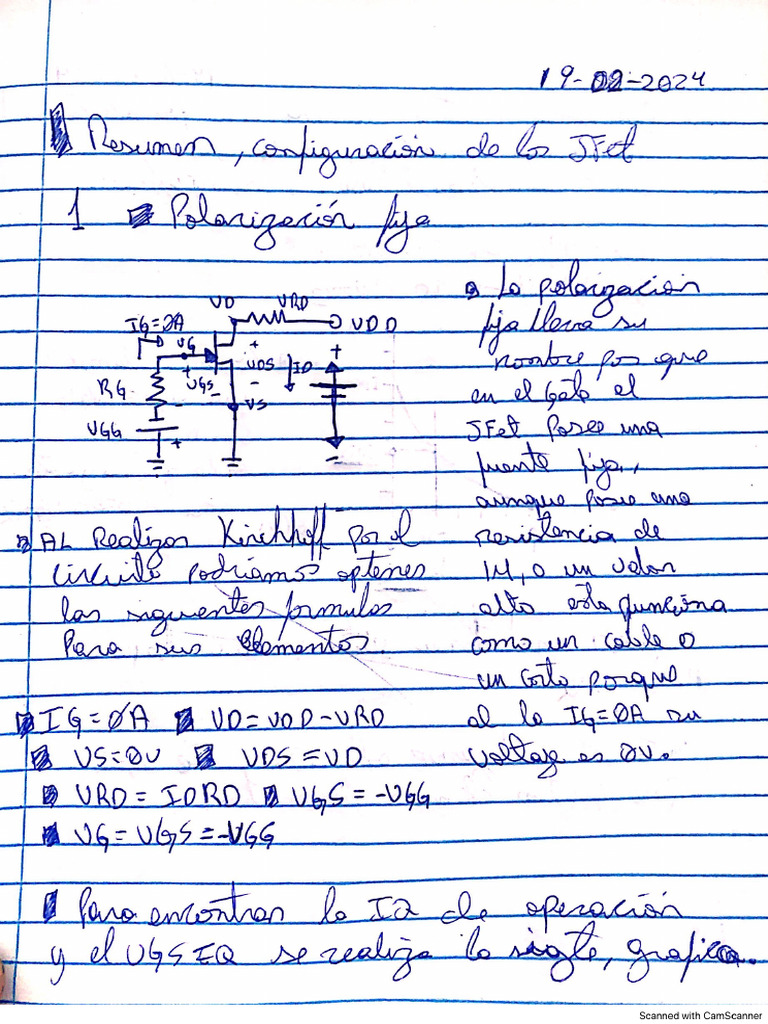 19-02-2024
Resumen, configuración de los JFet
1 Polarización fija
VD VRD
VDD
IG=0A VG
+ +
VDS ID
RG + VGS - -
VS
VGG
+ -
La polarización
fija lleva su
nombre por que
en el Gate el
JFet posee una
fuente fija,
aunque posee una
resistencia de
1M, o un valor
alto esta funciona
como un cable o
un corto porque
al la IG=0A su
voltaje es 0V.
AL Realizar Kirchhoff por el
circuito podriamos optener
las siguientes formulas
Para sus Elementos.
IG=0A VD=VDD-VRD
VS=0V VDS=VD
VRD=IDRD VGS=-VGG
VG=VGS=-VGG
Para encontrar la IQ de operación
y el VGSEQ se realiza la sigte, grafica.
Scanned with CamScanner